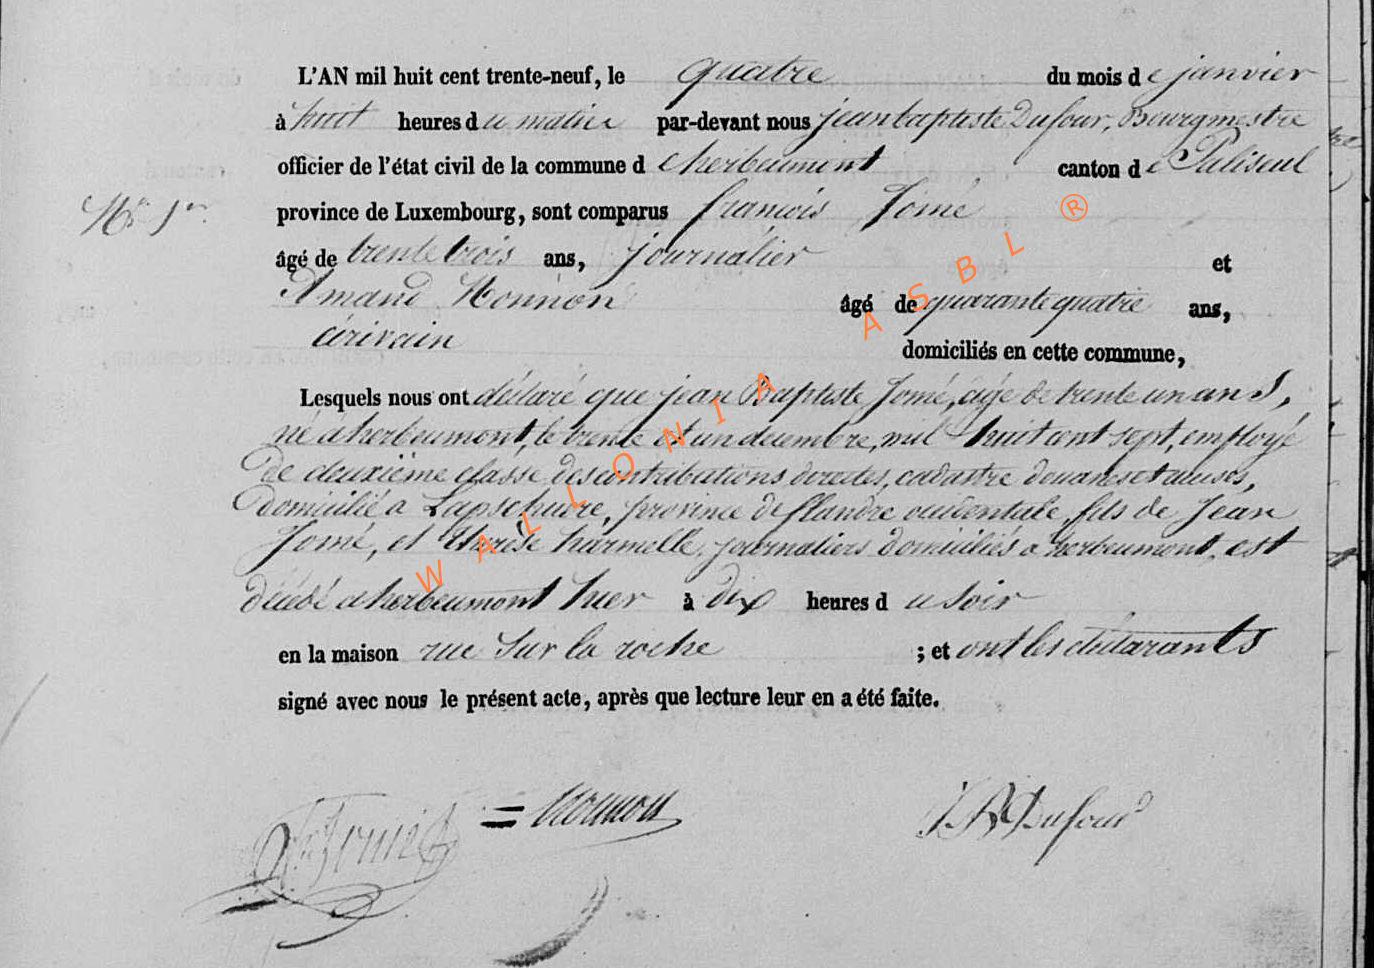 L'AN mil huit cent trente-neuf, le quatre du mois de janvier
à huit heures du matin par-devant nous jean baptiste Dufour, Bourgmestre
officier de l'état civil de la commune d'herbeumont canton de Paliseul
N° 1er
province de Luxembourg, sont comparus françois Jomé
âgé de trente trois ans, journalier et
Amand Monnon âgé de quarante quatre ans,
écrivain domiciliés en cette commune,
Lesquels nous ont déclaré que jean Baptiste Jomé, âgé de trente un ans,
né a herbeumont, le trente et un decembre, mil huit cent sept, employé
de deuxième classe des contributions directes, cadastre douanes et accises,
domicilié a Lapscheure, province de flandre occidentale, fils de Jean
Jomé, et Thérèse harmelle, journaliers domiciliés a herbeumont, est
décédé a herbeumont hier à dix heures du soir
en la maison rue Sur la roche ; et ont les déclarants
signé avec nous le présent acte, après que lecture leur en a été faite.
Monnon JB Dufour
WALLONIA ASBL ®